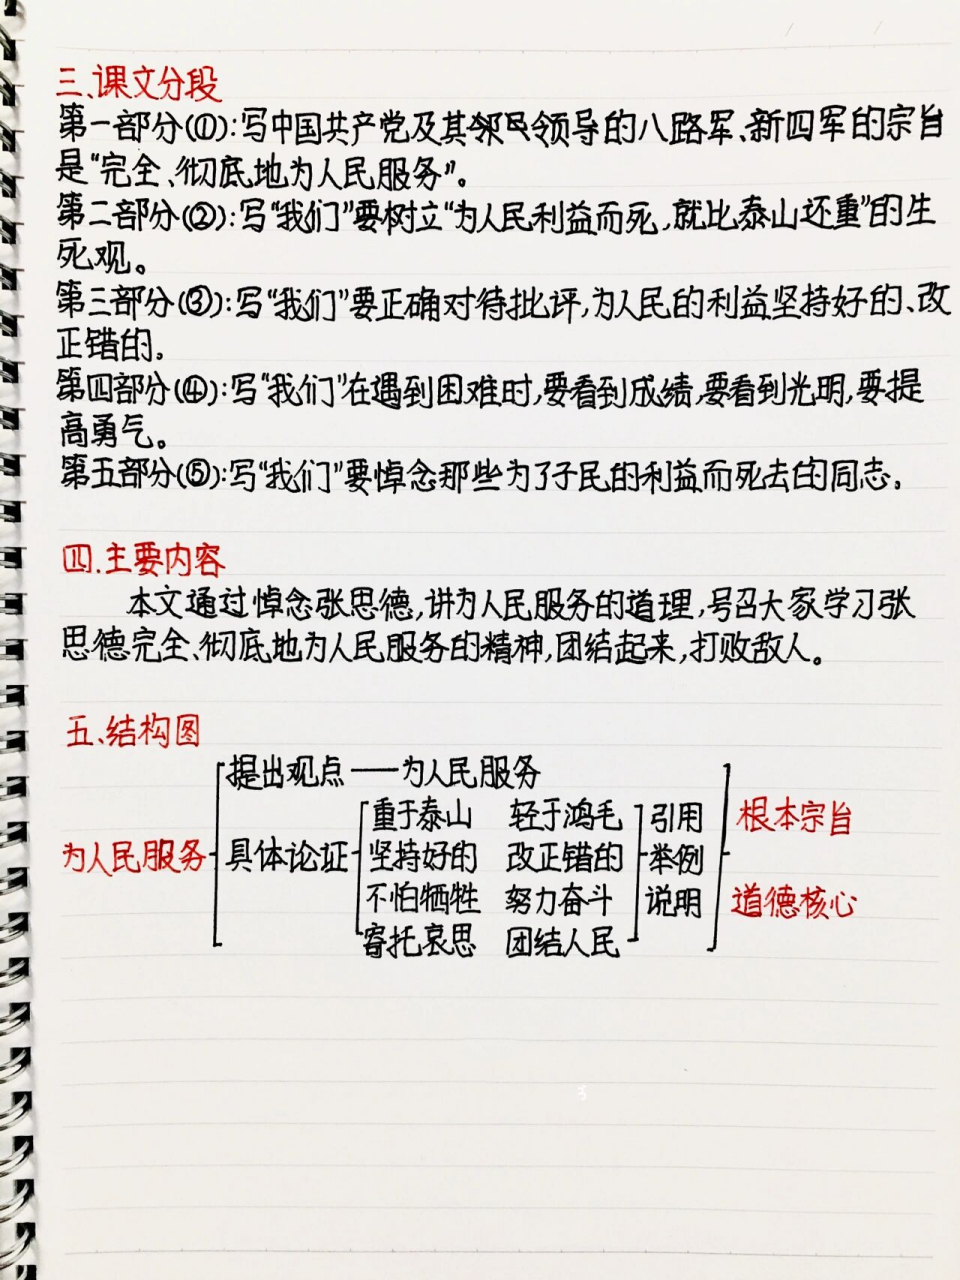 三、课文分段
第一部分(①):写中国共产党及其领导的八路军、新四军的宗旨
是“完全、彻底地为人民服务”。
第二部分(②):写“我们”要树立“为人民利益而死,就比泰山还重”的生
死观。
第三部分(③):写“我们”要正确对待批评,为人民的利益坚持好的、改
正错的。
第四部分(④):写“我们”在遇到困难时,要看到成绩,要看到光明,要提
高勇气。
第五部分(⑤):写“我们”要悼念那些为了子民的利益而死去的同志。
四.主要内容
本文通过悼念张思德,讲为人民服务的道理,号召大家学习张
思德完全、彻底地为人民服务的精神,团结起来,打败敌人。
五、结构图
提出观点——为人民服务
重于泰山 轻于鸿毛 引用 根本宗旨
为人民服务 具体论证 坚持好的 改正错的 举例
不怕牺牲 努力奋斗 说明 道德核心
寄托哀思 团结人民